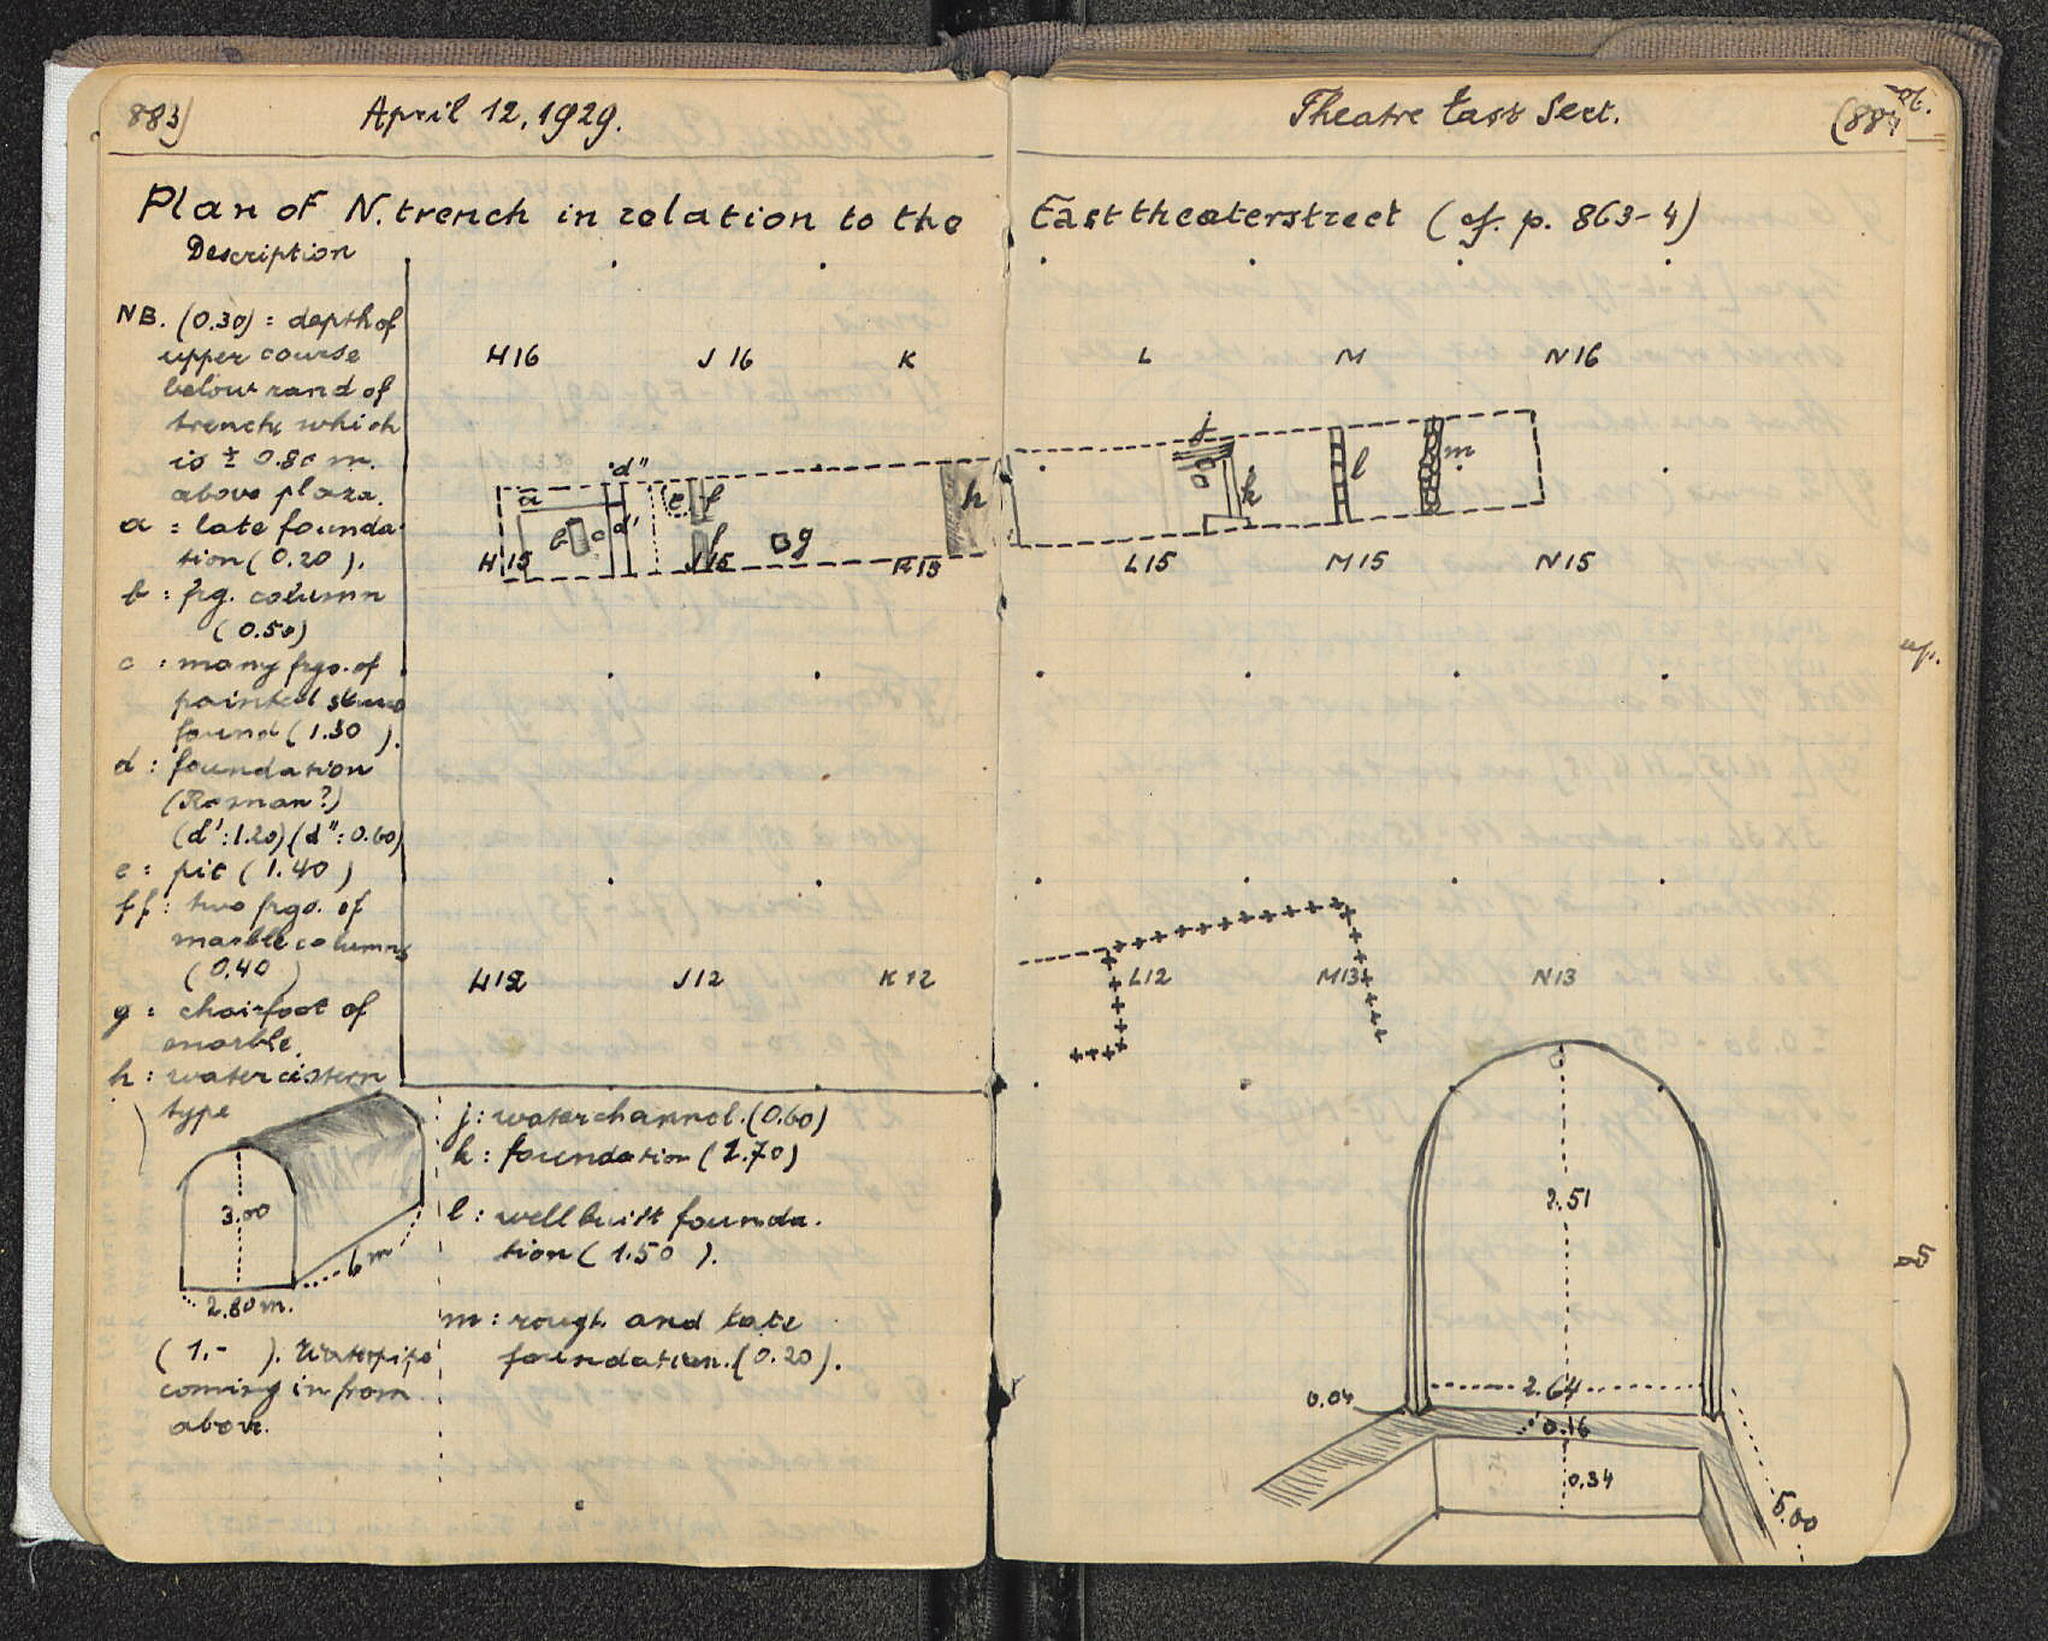 883)
April 12, 1929.
Plan of N. trench in relation to the
Description
NB. (0.30) = depth of
upper course
below rand of
trench, which
is ± 0.80 m.
above plaza.
a = late founda-
tion (0.20 ).
b : frg. column
(0.50)
c : many frgs. of
painted stucco
found (1.30 ).
d : foundation
(Roman?)
(d' : 1.20) (d" : 0.60)
e : pit (1.40)
f f : two frgs. of
marble columns
(0.40 )
g : chairfoot of
marble.
h : watercistern
type
3.00
6 m
2.80 m.
(1.- ). Waterpipe
coming in from
above.
H16
J 16
K
a
b
c
d"
d'
e
f
f
g
h
H15
J15
K15
H12
J12
K12
j : waterchannel. (0.60)
k : foundation (1.70)
l : wellbuilt founda-
tion (1.50 ).
m : rough and late
foundation. (0.20).
Theatre East Sect.
(884
East theaterstreet (cf. p. 863-4)
L
M
N16
j
k
l
m
L15
M15
N15
L12
M13
N13
2.51
2.64
0.04
0.16
0.34
5.00